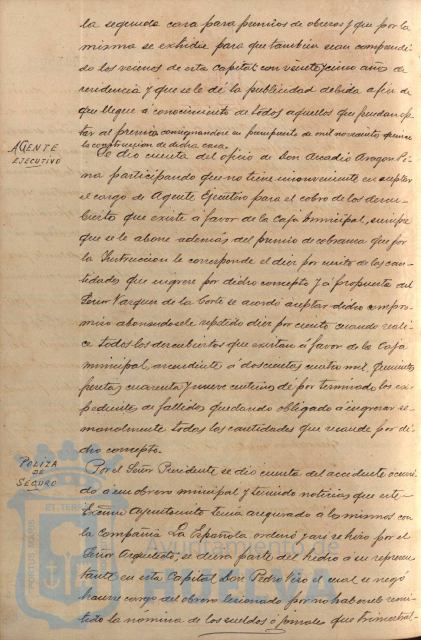 la segunda casa para premios de obreros y que por la
misma se exhiba para que tambien sean comprendi-
dos los vecinos de esta Capital con veinte y cinco años de
residencia y que se le dé la publicidad debida a fin de
que llegue á conocimiento de todos aquellos que puedan op-
tar al premio consignandose en presupuesto de mil novecientos
la construccion de dicha casa.
AGENTE
EJECUTIVO
Se dio cuenta del oficio de Don Arcadio Aragon
participando que no tiene inconveniente en aceptar
el cargo de Agente Ejecutivo para el cobro de los descu-
biertos que existe á favor de la Caja Municipal, siempre
que se le abone además del premio de cobranza que por
la Instruccion le corresponde el diez por ciento de las can-
tidades que ingrese por dicho concepto y á propuesta del
Señor Vazquez de la Corte se acordó aceptar dicho compro-
miso abonandosele repetido diez por ciento cuando reali-
ce todos los descubiertos que existan á favor de la Caja
municipal, ascendente á doscientas cuatro mil, quinientas
pesetas cuarenta y nueve centimos dé por terminado los ex-
pedientes de fallidos quedando obligado á ingresar se-
manalmente todas las cantidades que recaude por di-
cho concepto.
POLIZA
DE
SEGURO
Por el Señor Presidente se dio cuenta del accidente ocurri-
do á un obrero municipal y teniendo noticias que este
Excmo Ayuntamiento tenia asegurado á los mismos con
la Compañia La Española ordenó y asi se hizo por el
Señor Arquitecto, se diera parte del hecho á su represen-
tante en esta Capital Don Pedro el cual se negó
hacerse cargo del obrero lesionado por no haberle remi-
tido la nómina de los sueldos ó jornales que trimestral-